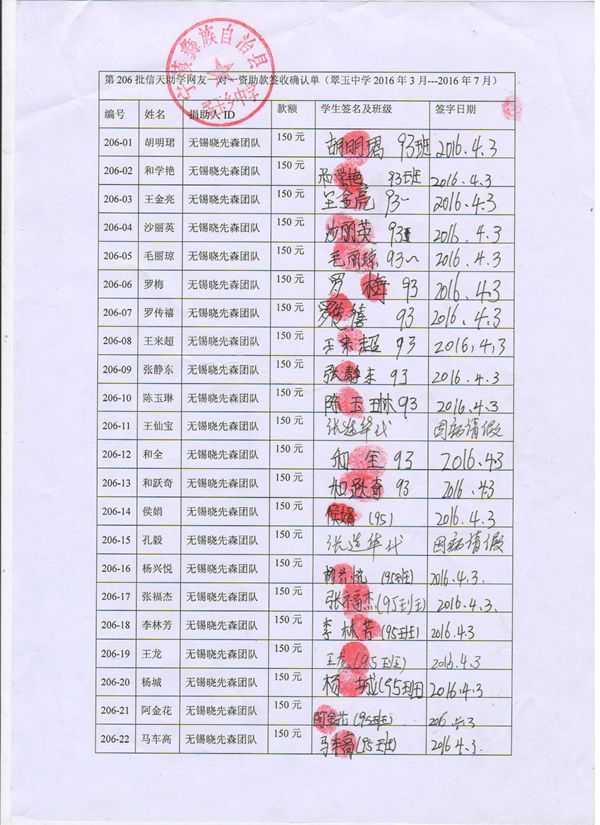 宁蒗彝族自治县
翠玉乡中学
第 206 批信天助学网友一对一资助款签收确认单（翠玉中学 2016 年 3 月---2016 年 7 月）
编号 姓名 捐助人 ID 款额 学生签名及班级 签字日期
206-01 胡明珺 无锡晓先森团队 150 元 胡明珺 93班 2016.4.3
206-02 和学艳 无锡晓先森团队 150 元 和学艳 93班 2016.4.3
206-03 王金亮 无锡晓先森团队 150 元 王金亮 93~ 2016.4.3
206-04 沙丽英 无锡晓先森团队 150 元 沙丽英 93 2016.4.3
206-05 毛丽琼 无锡晓先森团队 150 元 毛丽琼 93~ 2016.4.3
206-06 罗梅 无锡晓先森团队 150 元 罗梅 93 2016.4.3
206-07 罗传禧 无锡晓先森团队 150 元 罗传禧 93 2016.4.3
206-08 王来超 无锡晓先森团队 150 元 王来超 93 2016,4,3
206-09 张静东 无锡晓先森团队 150 元 张静东 93 2016.4.3
206-10 陈玉琳 无锡晓先森团队 150 元 陈玉琳 93 2016.4.3
206-11 王仙宝 无锡晓先森团队 150 元 张莲华代 因病请假
206-12 和全 无锡晓先森团队 150 元 和全 93 2016.4.3
206-13 和跃奇 无锡晓先森团队 150 元 和跃奇 93 2016.4.3
206-14 侯娟 无锡晓先森团队 150 元 侯娟 (95) 2016.4.3
206-15 孔毅 无锡晓先森团队 150 元 张莲华代 因病请假
206-16 杨兴悦 无锡晓先森团队 150 元 杨兴悦 (95班) 2016.4.3.
206-17 张福杰 无锡晓先森团队 150 元 张福杰(95班) 2016.4.3.
206-18 李林芳 无锡晓先森团队 150 元 李林芳(95班) 2016.4.3
206-19 王龙 无锡晓先森团队 150 元 王龙(95班) 2016.4.3
206-20 杨城 无锡晓先森团队 150 元 杨城(95班) 2016.4.3
206-21 阿金花 无锡晓先森团队 150 元 阿金花(95班) 2016.4.3
206-22 马车高 无锡晓先森团队 150 元 马车高(95班) 2016.4.3.